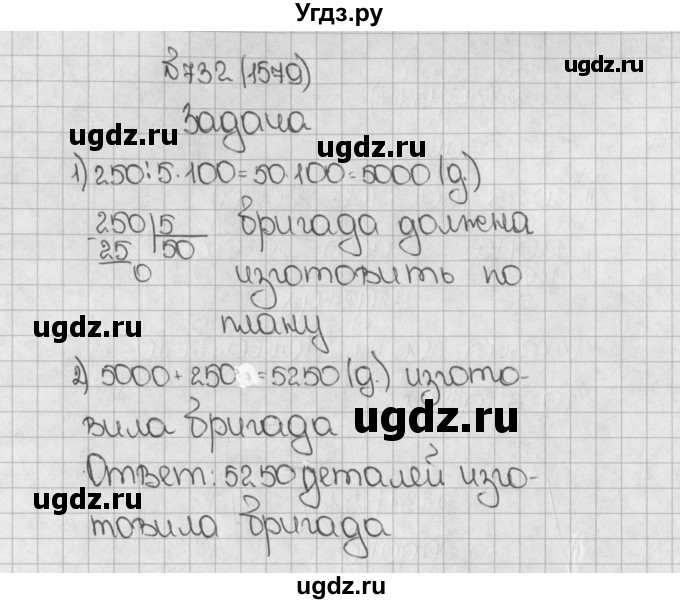 Угдз.ру
№732 (1579)
ugdz.ru
Задача
ugdz.ru
ugdz.ru
1) 250:5·100=50·100=5000 (д.)
250 5 бригада должна
25 50
0 изготовить по
ugdz.ru
плану
ugdz.ru
2) 5000+250=5250 (д.) изгото-
вила бригада
ugdz.ru
Ответ: 5250 деталей изго-
ugdz.ru
товила бригада
ugdz.ru
ugdz.ru